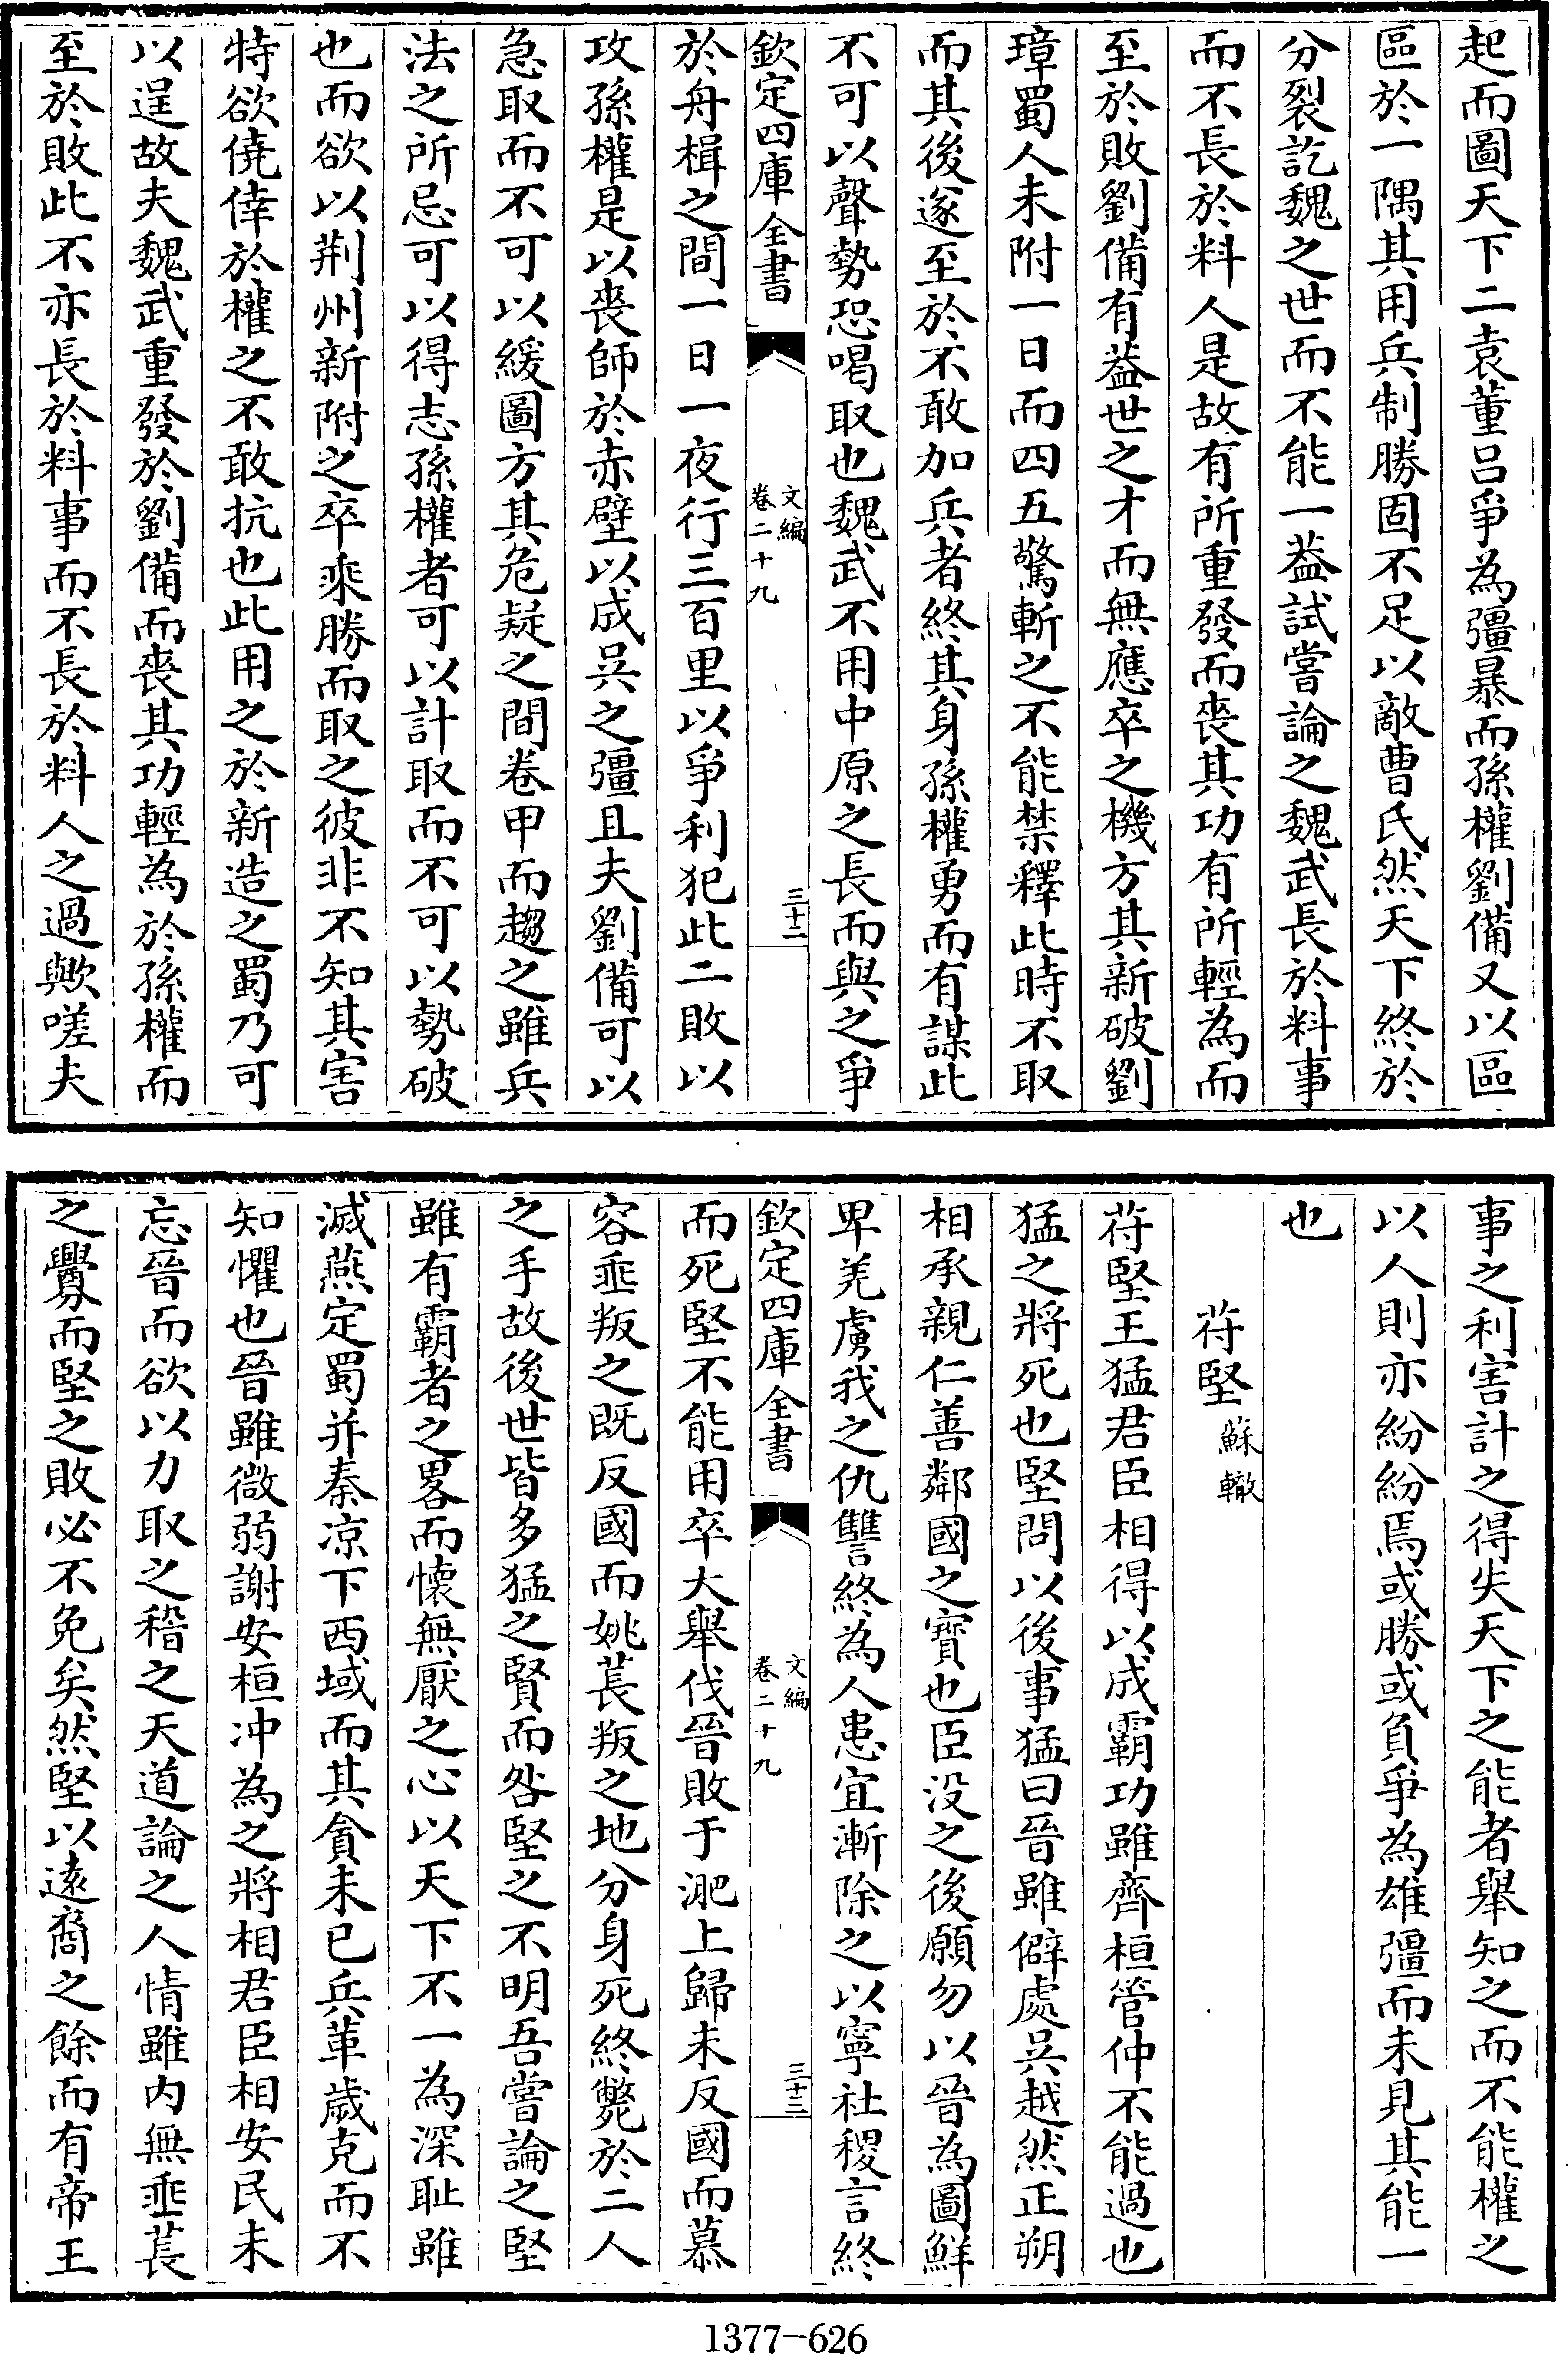 起而圖天下二袁董吕爭為彊暴而孫權劉備又以區
區於一隅其用兵制勝固不足以敵曹氏然天下終於
分裂訖魏之世而不能一葢試嘗論之魏武長於料事
而不長於料人是故有所重發而喪其功有所輕為而
至於敗劉備有葢世之才而無應卒之機方其新破劉
璋蜀人未附一日而四五驚斬之不能禁釋此時不取
而其後遂至於不敢加兵者終其身孫權勇而有謀此
不可以聲勢恐喝取也魏武不用中原之長而與之爭
欽定四庫全書
文編
卷二十九
三十二
於舟楫之間一日一夜行三百里以爭利犯此二敗以
攻孫權是以喪師於赤壁以成吳之彊且夫劉備可以
急取而不可以緩圖方其危疑之間卷甲而趨之雖兵
法之所忌可以得志孫權者可以計取而不可以勢破
也而欲以荆州新附之卒乘勝而取之彼非不知其害
特欲僥倖於權之不敢抗也此用之於新造之蜀乃可
以逞故夫魏武重發於劉備而喪其功輕為於孫權而
至於敗此不亦長於料事而不長於料人之過歟嗟夫
事之利害計之得失天下之能者舉知之而不能權之
以人則亦紛紛焉或勝或負爭為雄彊而未見其能一
也
苻堅 蘇轍
苻堅王猛君臣相得以成霸功雖齊桓管仲不能過也
猛之將死也堅問以後事猛曰晉雖僻處吳越然正朔
相承親仁善鄰國之寳也臣没之後願勿以晉為圖鮮
卑羌虜我之仇讐終為人患宜漸除之以寧社稷言終
欽定四庫全書
文編
卷二十九
三十三
而死堅不能用卒大舉伐晉敗于淝上歸未反國而慕
容垂叛之既反國而姚萇叛之地分身死終斃於二人
之手故後世皆多猛之賢而咎堅之不明吾嘗論之堅
雖有霸者之畧而懐無厭之心以天下不一為深耻雖
滅燕定蜀并秦凉下西域而其貪未已兵革歲克而不
知懼也晉雖微弱謝安桓冲為之將相君臣相安民未
忘晉而欲以力取之稽之天道論之人情雖内無垂萇
之釁而堅之敗必不免矣然堅以逺裔之餘而有帝王
1377-626